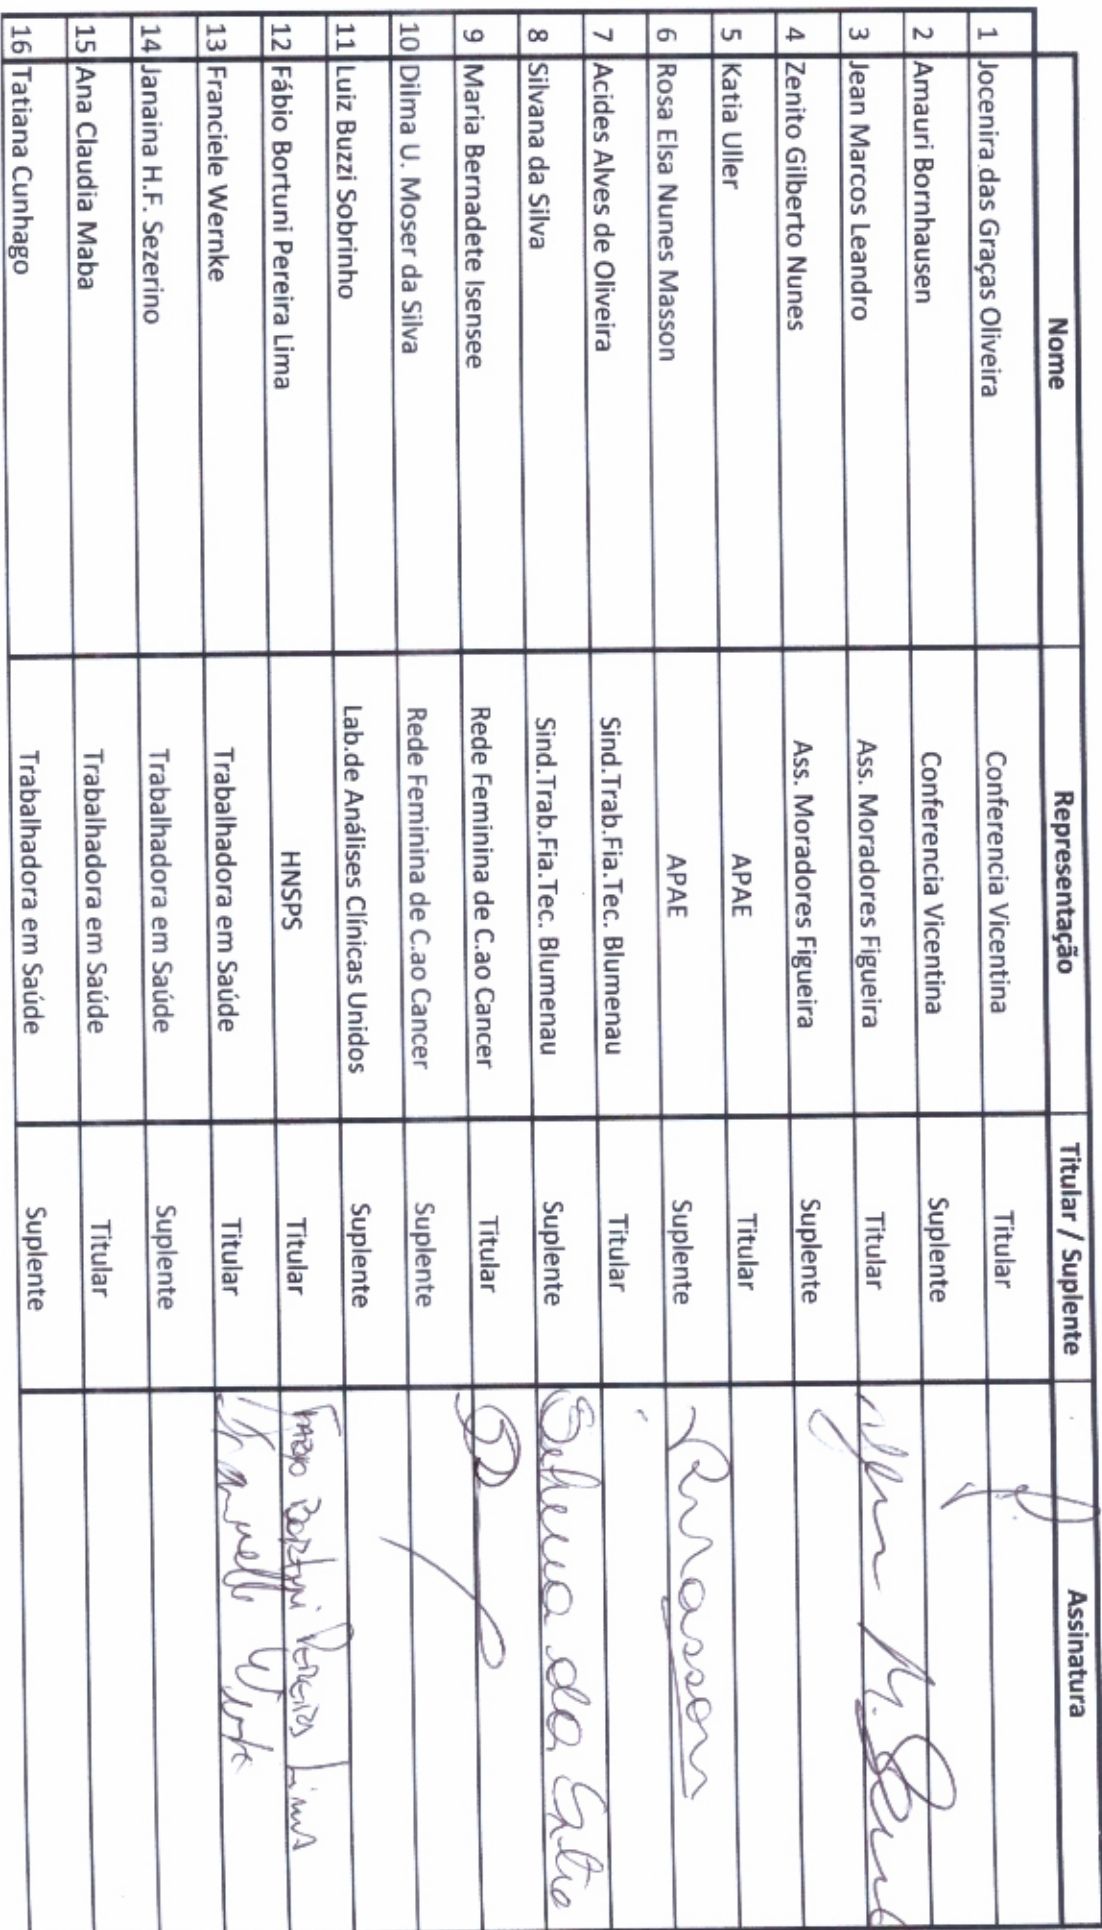 Nome Representação Titular / Suplente Assinatura
1 Jocenira das Graças Oliveira Conferencia Vicentina Titular
2 Amauri Bornhausen Conferencia Vicentina Suplente
3 Jean Marcos Leandro Ass. Moradores Figueira Titular
4 Zenito Gilberto Nunes Ass. Moradores Figueira Suplente
5 Katia Uller APAE Titular
6 Rosa Elsa Nunes Masson APAE Suplente RMasson
7 Acides Alves de Oliveira Sind.Trab.Fia.Tec. Blumenau Titular
8 Silvana da Silva Sind.Trab.Fia.Tec. Blumenau Suplente
9 Maria Bernadete Isensee Rede Feminina de C.ao Cancer Titular
10 Dilma U. Moser da Silva Rede Feminina de C.ao Cancer Suplente
11 Luiz Buzzi Sobrinho Lab.de Análises Clínicas Unidos Suplente
12 Fábio Bortuni Pereira Lima HNSPS Titular Pereira Lima
13 Franciele Wernke Trabalhadora em Saúde Titular
14 Janaina H.F. Sezerino Trabalhadora em Saúde Suplente
15 Ana Claudia Maba Trabalhadora em Saúde Titular
16 Tatiana Cunhago Trabalhadora em Saúde Suplente